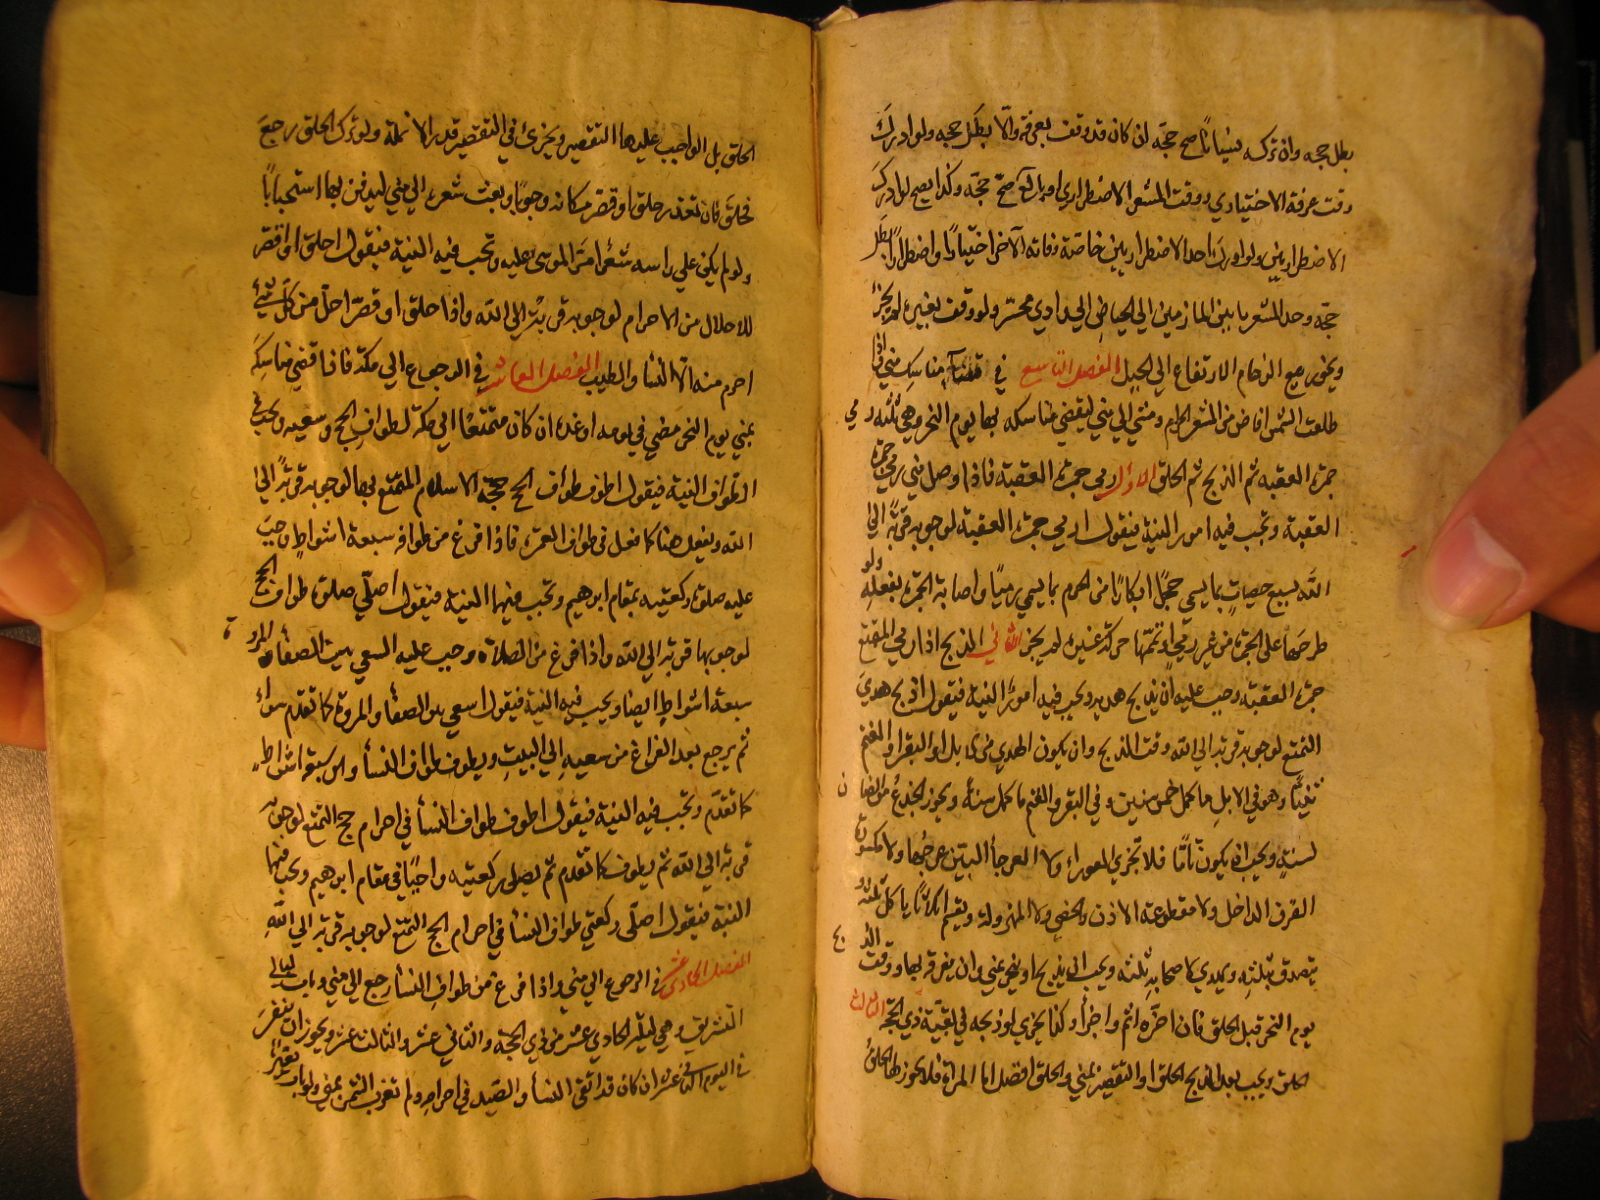 بطل حجه وان تركه نسيانا صح حجه ان كان قد وقف بعرفة والا بطل حجه ولو ادرك
وقت عرفة الاختياري ووقت المشعر الاضطراري او بالعكس صح حجه وكذا يصح لو ادرك
الاضطراريين ولو ادرك احد الاضطراريين خاصة وفاته الآخر اختيارا واضطرارا بطل
حجه وحد المشعر ما بين المازمين الى الحياض الى وادي محسر ولو وقف بغيره لم يجز
ويجوز مع الزحام الارتفاع الى الجبل الفصل التاسع في مناسك منى فاذا
طلعت الشمس افاض من المشعر الحرام ومضى الى منى ليقضي مناسكه بها يوم النحر وهي ثلثه رمي
جمرة العقبه ثم الذبح ثم الحلق الاول رمي جمرة العقبة فاذا وصل منى رمى جمرة
العقبة وتجب فيه امور النية فيقول ارمي جمرة العقبة لوجوبه قربة الى
الله بسبع حصيات بما يسمى حجرا ابكارا من الحرم بما يسمى رميا واصابة الجمرة بفعله ولو
طرحها على الجمرة من غير رمي او تممتها حركة غيره لم يجز الثاني الذبح اذا رمى المتمتع
جمرة العقبة وجب عليه ان يذبح هديه ويجب فيه امور النية فيقول اذبح هدي
التمتع لوجوبه قربة الى الله وقت الذبح وان يكون الهدي من الابل او البقر او الغنم
ثنيا وهو في الابل ما كمل خمس سنين وفي البقر والغنم ما كمل سنة ويجوز الجذع من الضان
لسنة ويجب ان يكون تاما فلا تجزي العوراء ولا العرجاء البين عرجها ولا مكسورة
القرن الداخل ولا مقطوعة الاذن والخصي ولا المهزولة ويقسم اثلاثا ياكل ثلثه و
يتصدق بثلثه ويهدي لاصحابه ثلثه ويجب ان يذبح او ينحر بمنى وان يفرقه بها ووقت الذبح
يوم النحر قبل الحلق فان اخره اثم واجزأ وكذا يجزي لو ذبحه في بقية ذي الحجة الثالث
الحلق ويجب بعد الذبح الحلق او التقصير بمنى والحلق افضل اما المرأة فلا يجوز لها الحلق
الحلق بل الواجب عليها التقصير ويجزئ في التقصير قدر الانملة ولو ترك الحلق رجع
فحلق فان تعذر حلق او قصر مكانه وجوبا وبعث شعره الى منى ليدفن بها استحبابا
ولو لم يكن على راسه شعر امر الموسى عليه وتجب فيه النية فيقول احلق او اقصر
للاحلال من الاحرام لوجوبه قربة الى الله واذا حلق او قصر احل من كل شيء
احرم منه الا النسا والطيب الفصل العاشر في الرجوع الى مكة فاذا قضى مناسكه
بمنى يوم النحر مضى في يومه او غده ان كان متمتعا الى مكة لطواف الحج وسعيه وتجب في
الطواف النية فيقول اطوف طواف الحج حجة الاسلام المتمتع بها لوجوبه قربة الى
الله ويفعل هنا كما فعل في طواف العمرة فاذا فرغ من طوافه سبعة اشواط وجب
عليه صلوة ركعتيه بمقام ابرهيم وتجب فيها النية فيقول اصلي صلوة طواف الحج
لوجوبها قربة الى الله واذا فرغ من الصلاة وجب عليه السعي بين الصفا والمروة
سبعة اشواط ايضا ويجب فيه النية فيقول اسعى بين الصفا والمروة كما تقدم سواء
ثم يرجع بعد الفراغ من سعيه الى البيت ويطوف طواف النسأ سبعة اشواط
كما تقدم وتجب فيه النية فيقول اطوف طواف النسأ في احرام حج التمتع لوجوبه
قربة الى الله ثم يطوف كما تقدم ثم يصلي ركعتيه واجبا في مقام ابرهيم وتجب فيها
النية فيقول اصلي ركعتي طواف النسأ في احرام الحج التمتع لوجوبه قربة الى الله
الفصل الحادي عشر في الرجوع الى منى واذا فرغ من طواف النسأ رجع الى منى وبات ليالي
التشريق وهي ليلة الحادي عشر من ذي الحجه والثاني عشر والثالث عشر ويجوز ان ينفر
في اليوم الثاني عشر ان كان قد اتقى النسأ والصيد في احرامه ولم تغرب الشمس بمنى ولو بات بغير